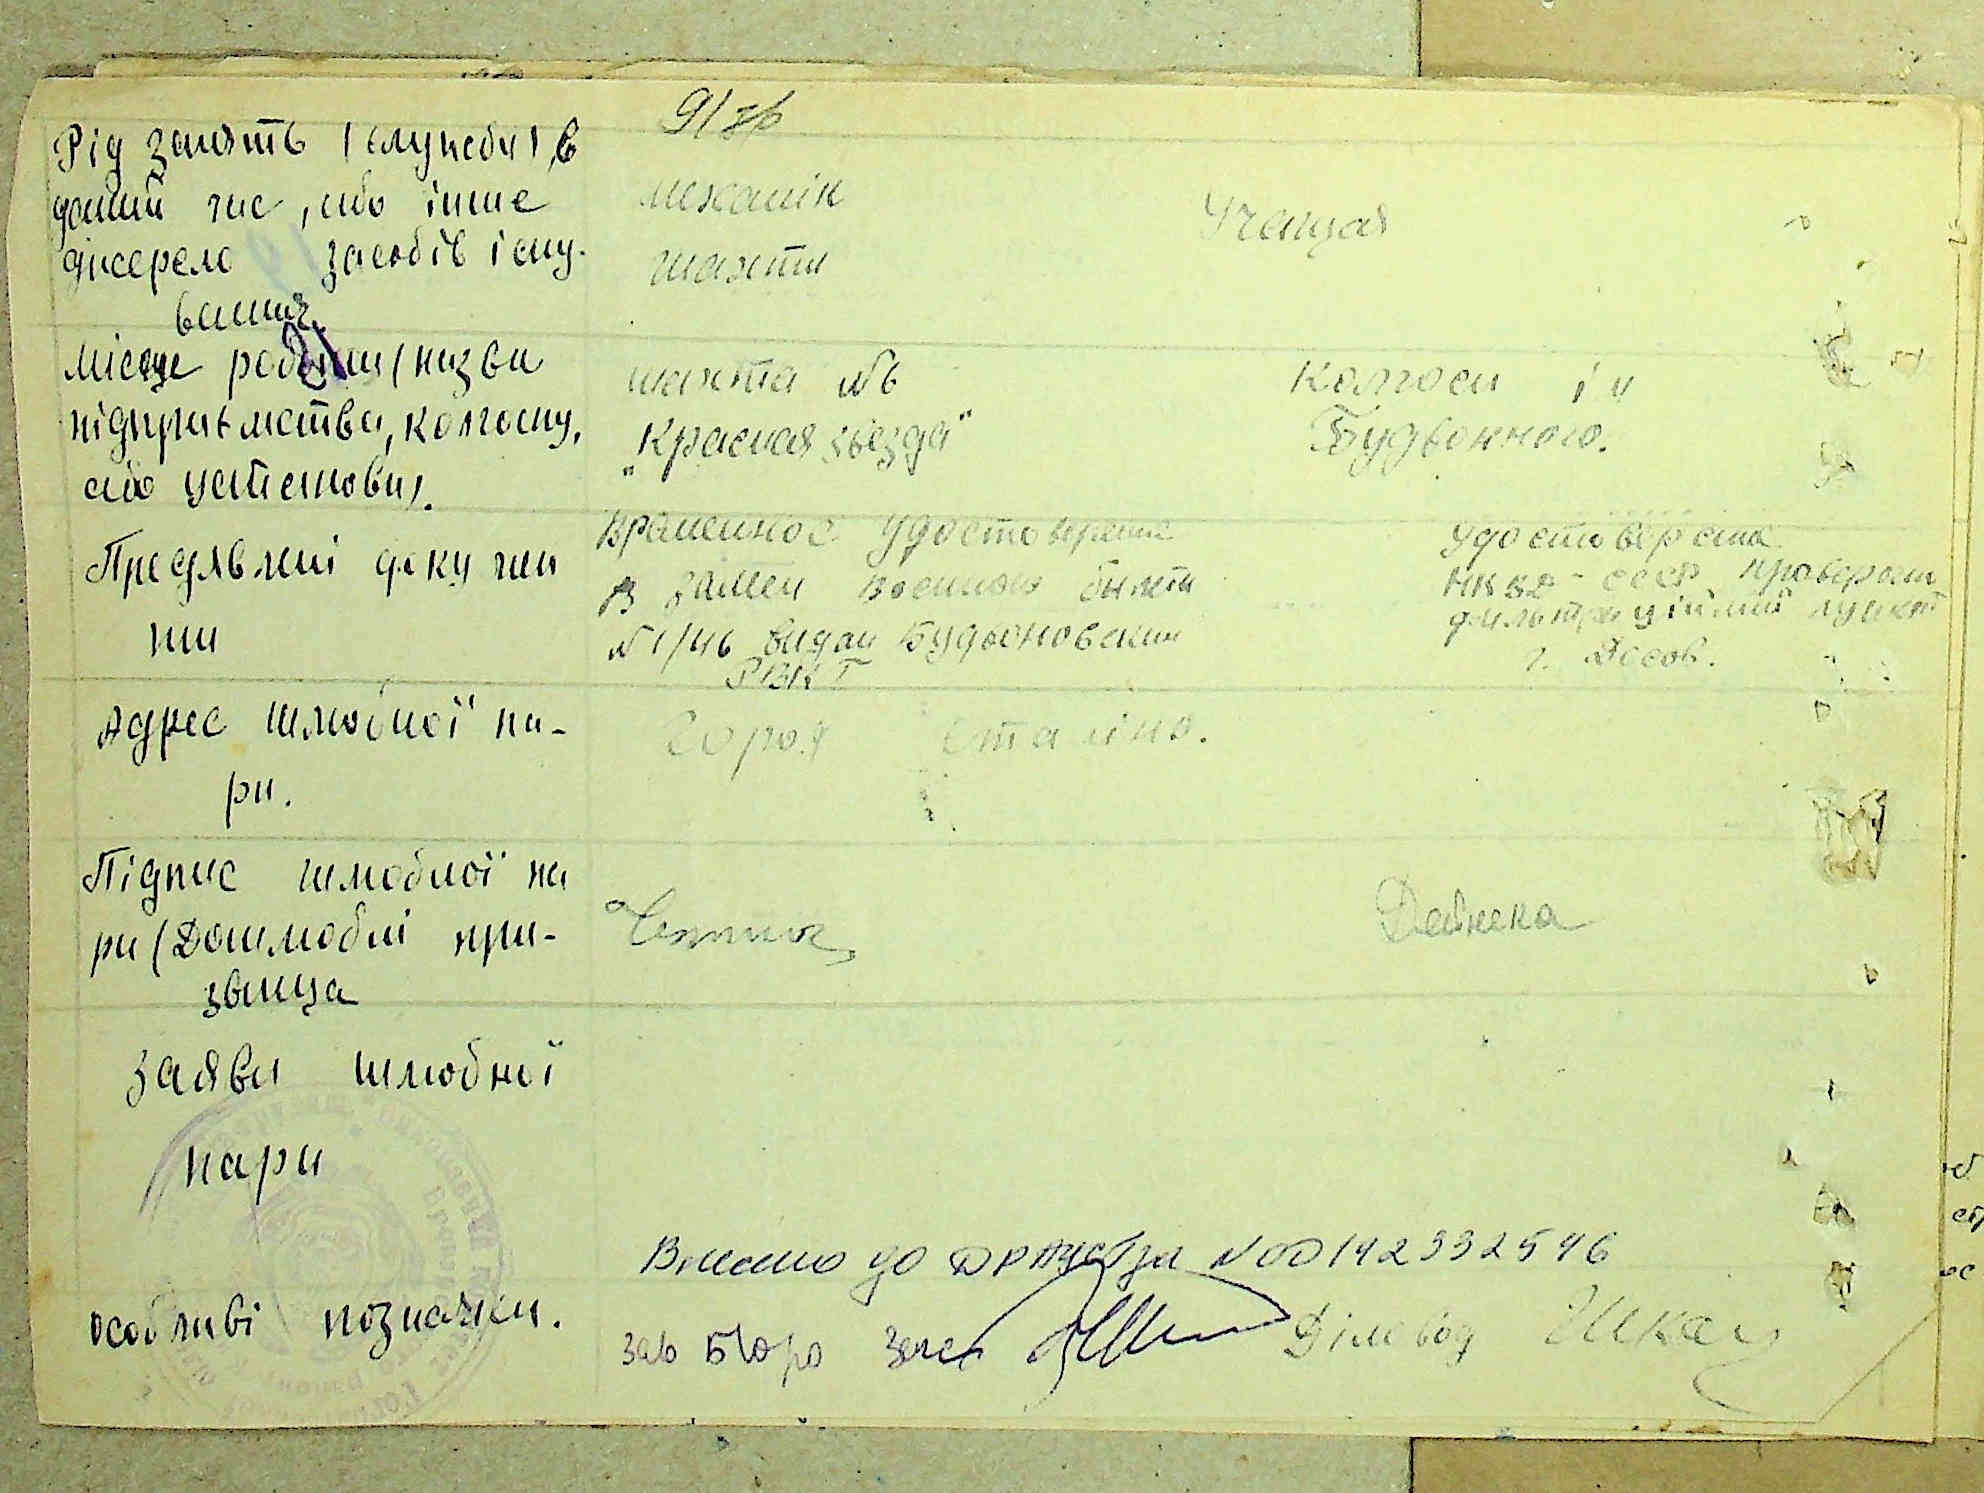 91 зв
Рід занять (служеби) в
даний час, або інше
джерело засобів існу-
вання.
механік
шахти
Учещая
Місце роботи (назва
підприємства, колгоспу,
або установи).
шахта №6
"Красная звезда"
Колгосп ім
Будьонного.
Предявлені докумен
ти
Временное удостоверение
в замен военного билета
№ 1/46 видан Будьоновским
РВКТ
Удостоверение
НКВД - СССР проверочн
фильтраційний пункт
г.
Адрес шлюбної па-
ри.
Город Сталіно.
Підпис шлюбної па
ри (Дошлюбні прі-
звища
Дейнека
Заяви шлюбної
пари
Особливі позначки.
Внесено до ДРАЦСГза №00142332546
Зав Бюро загс
Діловод